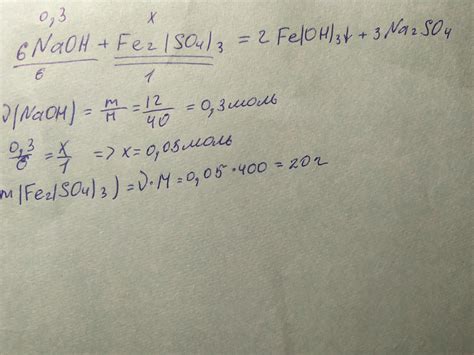 0,3 x
6NaOH + Fe2(SO4)3 = 2Fe(OH)3↓ + 3Na2SO4
6 1
ν(NaOH) = m/M = 12/40 = 0,3 моль
0,3/6 = x/1 => x = 0,05 моль
m(Fe2(SO4)3) = ν·M = 0,05·400 = 20 г